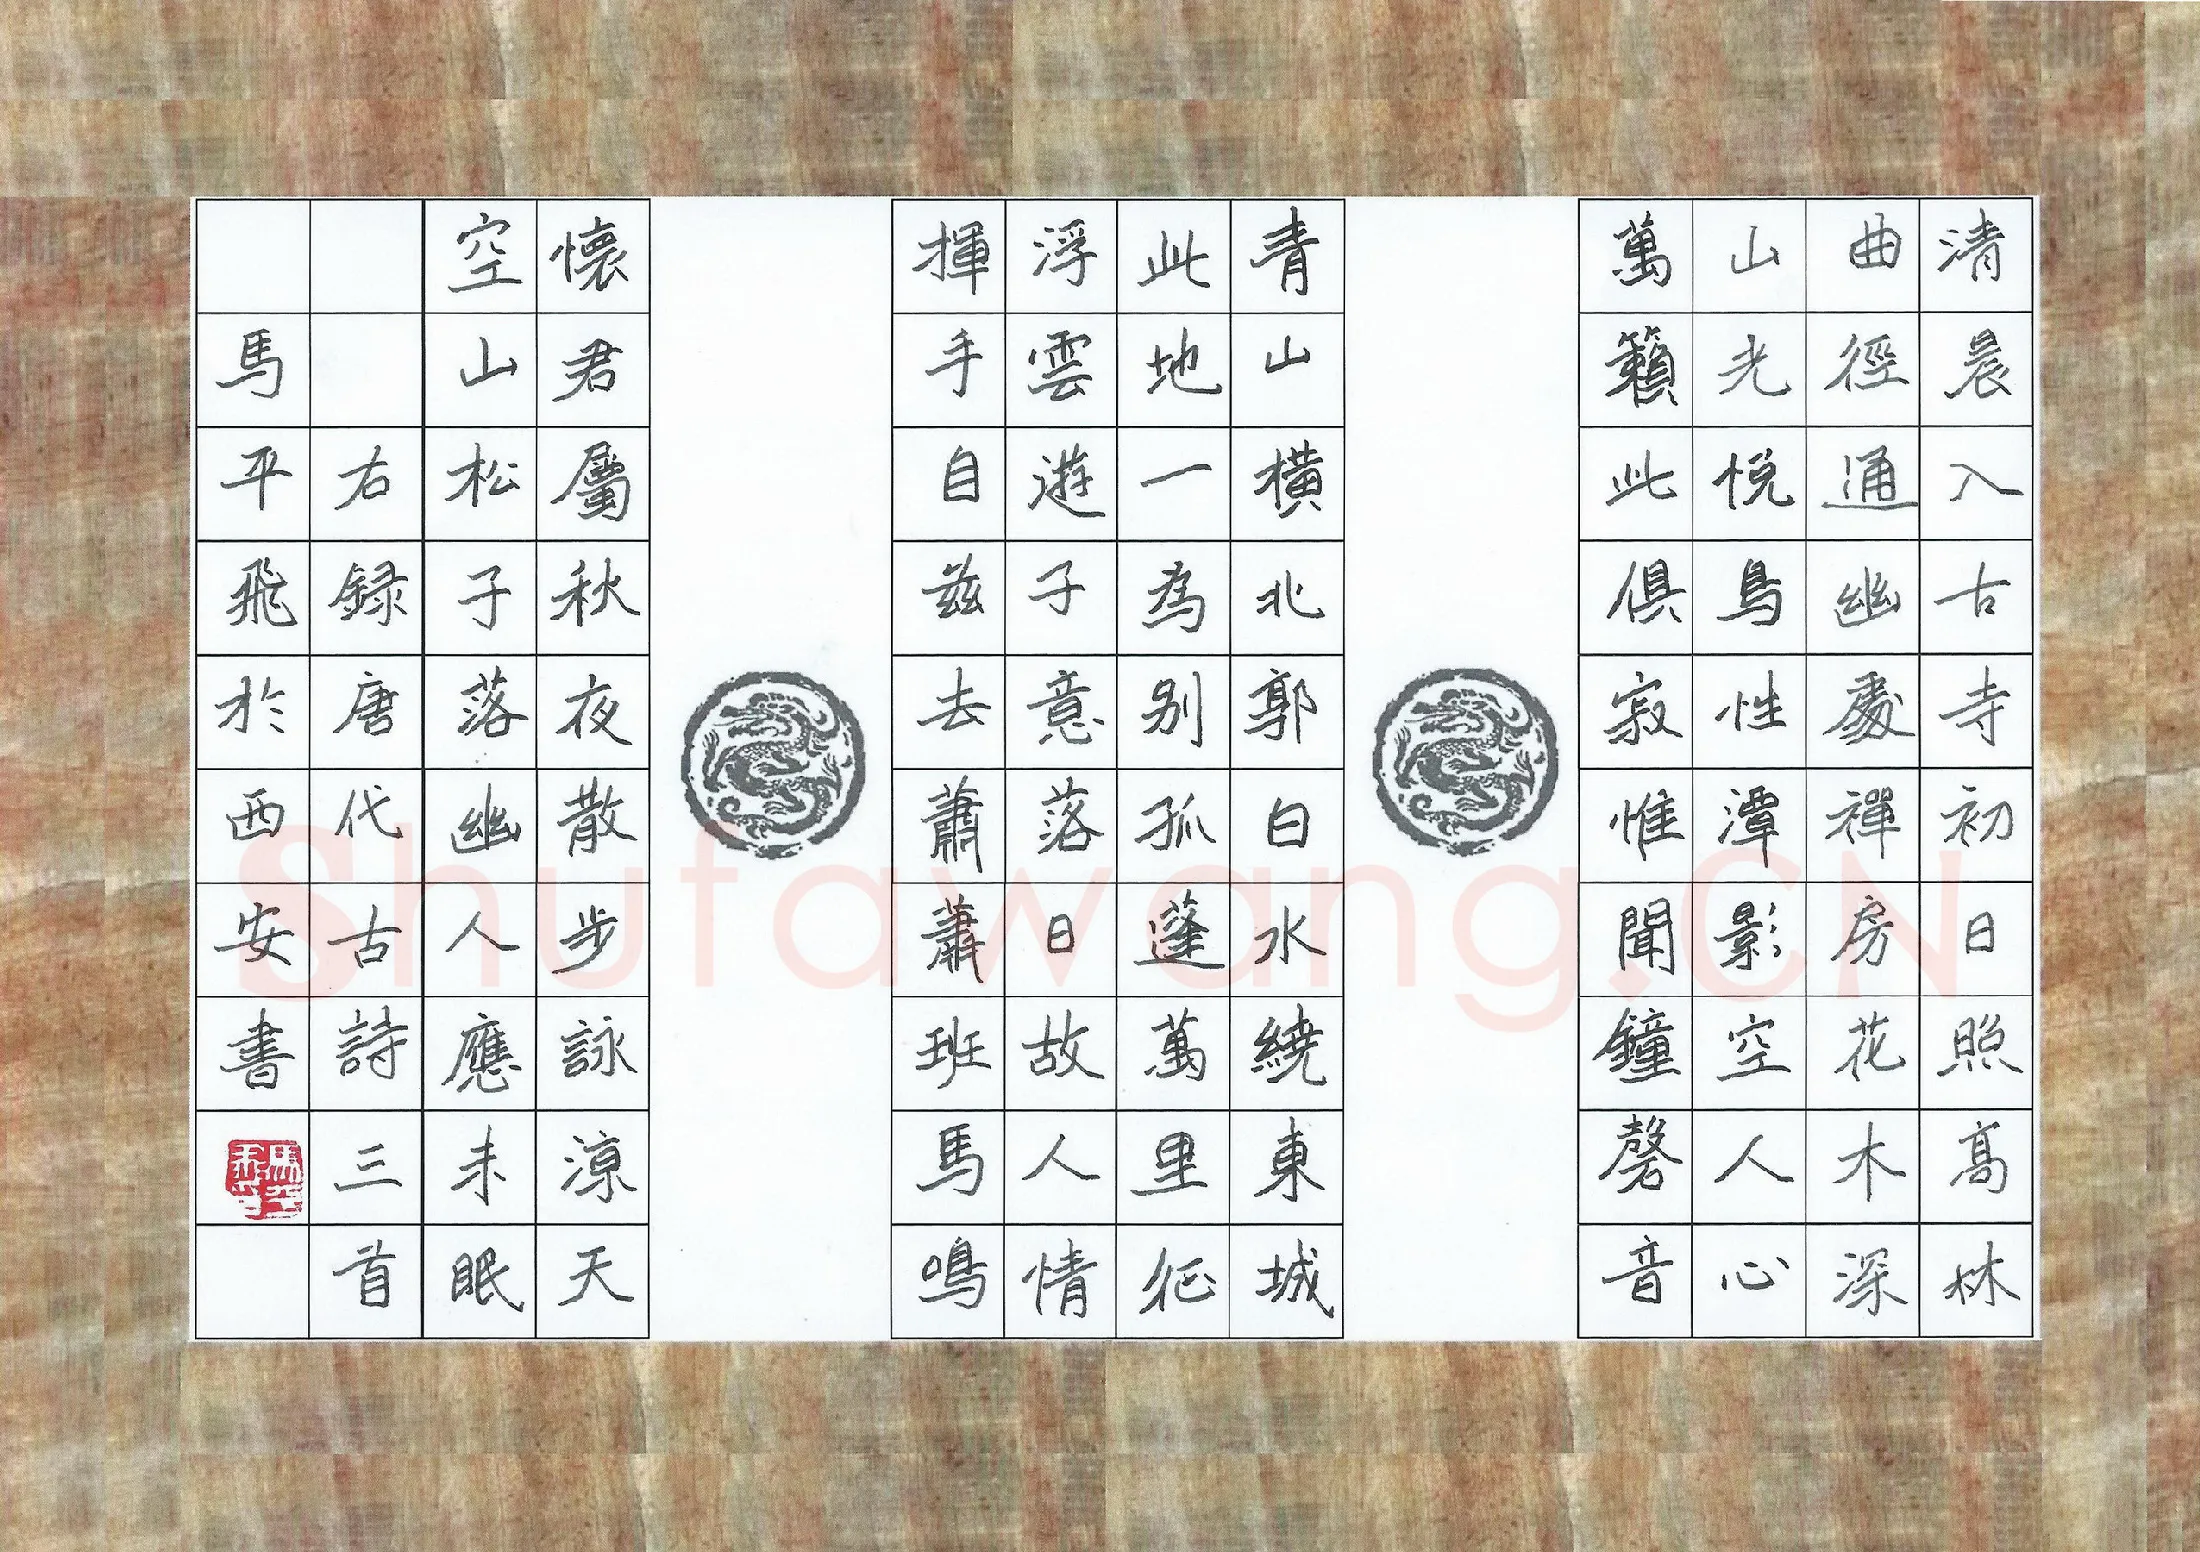 清晨入古寺初日照高林
曲徑通幽處禪房花木深
山光悅鳥性潭影空人心
萬籟此俱寂惟聞鐘磬音
青山橫北郭白水繞東城
此地一為別孤蓬萬里征
浮雲遊子意落日故人情
揮手自茲去蕭蕭班馬鳴
懷君屬秋夜散步詠涼天
空山松子落幽人應未眠
右録唐代古詩三首
馬平飛於西安書
Shufawang.CN